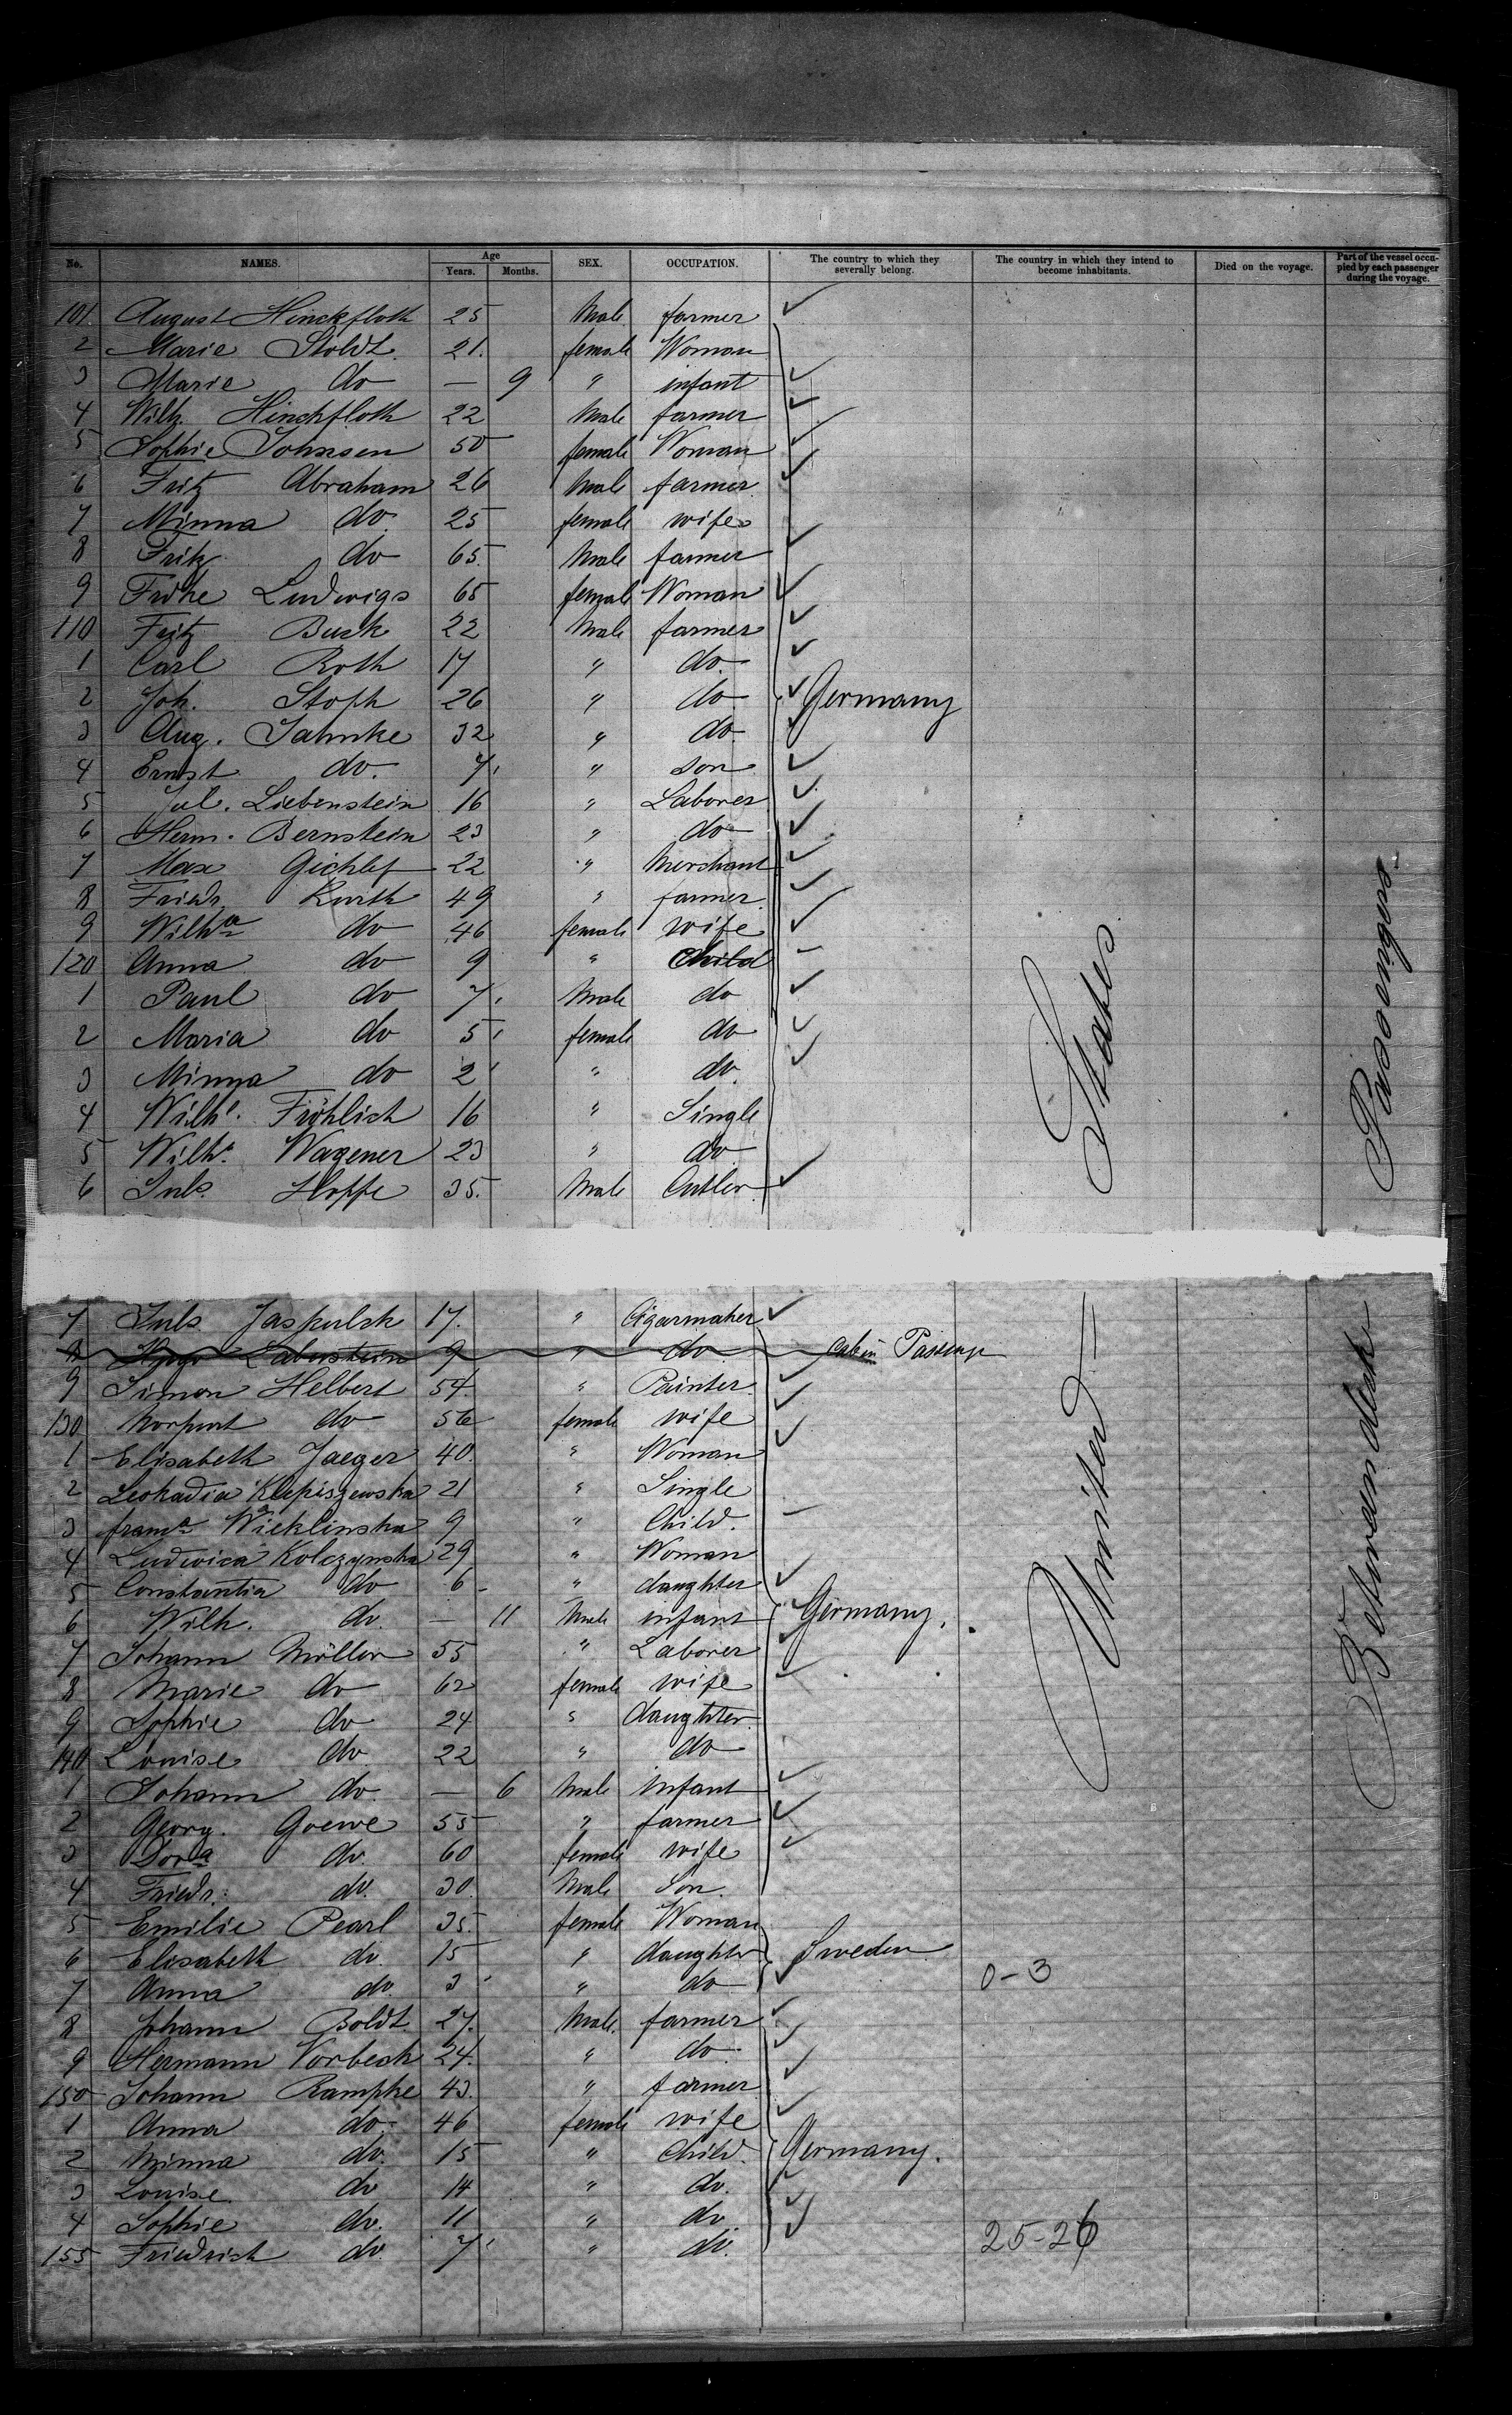 No. NAMES. Age Years. Months. SEX. OCCUPATION. The country to which they severally belong. The country in which they intend to become inhabitants. Died on the voyage. Part of the vessel occupied by each passenger during the voyage.
101 August Hinckfloth 25 Male farmer
2 Marie Stoldt 21. female Woman
3 Marie do — 9 " infant
4 Wilh. Hinckfloth 22 Male farmer
5 Sophie Johnsen 50 female Woman
6 Fritz Abraham 26 Male farmer
7 Minna do. 25 female wife
8 Fritz do 65. Male farmer
9 Ludwigs 65 female Woman
110 Fritz Buck 22 Male farmer
1 Carl Roth 17 " do.
2 Joh. Stoph 26 " do Germany
3 Aug. Jahnke 32 " do
4 Ernst do. 7 " son
5 Jul. Liebenstein 16 " Laborer
6 Herm. Bernstein 23 " do
7 Max 22 " Merchant
8 Friedr. Kurth 49 " farmer
9 Wilha do 46 female wife
120 Anna do 9 " Child
1 Paul do 7 Male do
2 Maria do 5 female do
3 Minna do 2 " do.
4 Wilhe. Fröhlich 16 " Single
5 Wilhe. Wagener 23 " do
6 Juls. Hoppe 35. Male Cutler
7 Juls. 17. " Cigarmaker
8 Hugo 9 " do Cabin Passenger
9 Simon Helbert 54. " Painter
130 do 56 female wife
1 Elisabeth Jaeger 40. " Woman
2 Leokadia Klepiszewska 21 " Single
3 9 " Child.
4 Ludwica Kolczynska 29 " Woman
5 Constantia do 6 " daughter
6 Wilh. do. — 11 Male infant Germany.
7 Johann Möller 55 " Laborer
8 Marie do 62 female wife
9 Sophie do 24 " daughter
140 Louise do 22 " do
1 Johann do. — 6 Male infant
2 Georg. Goewe 55 " farmer
3 Dora do. 60 female wife
4 Friedr. do. 30. Male Son.
5 Emilie Pearl 35. female Woman
6 Elisabeth do. 15 " daughter Sweden
7 Anna do. 3 " do 0-3
8 Johann Boldt. 27. Male. farmer
9 Hermann Vorbeck 24. " do
150 Johann Rampke 43. " farmer
1 Anna do. 46 female wife
2 Minna do. 15 " Child. Germany.
3 Louise do 14 " do.
4 Sophie do. 11 " do
155 Friedrich do. 7 " do. 25-26
United States
Between deck Passengers.